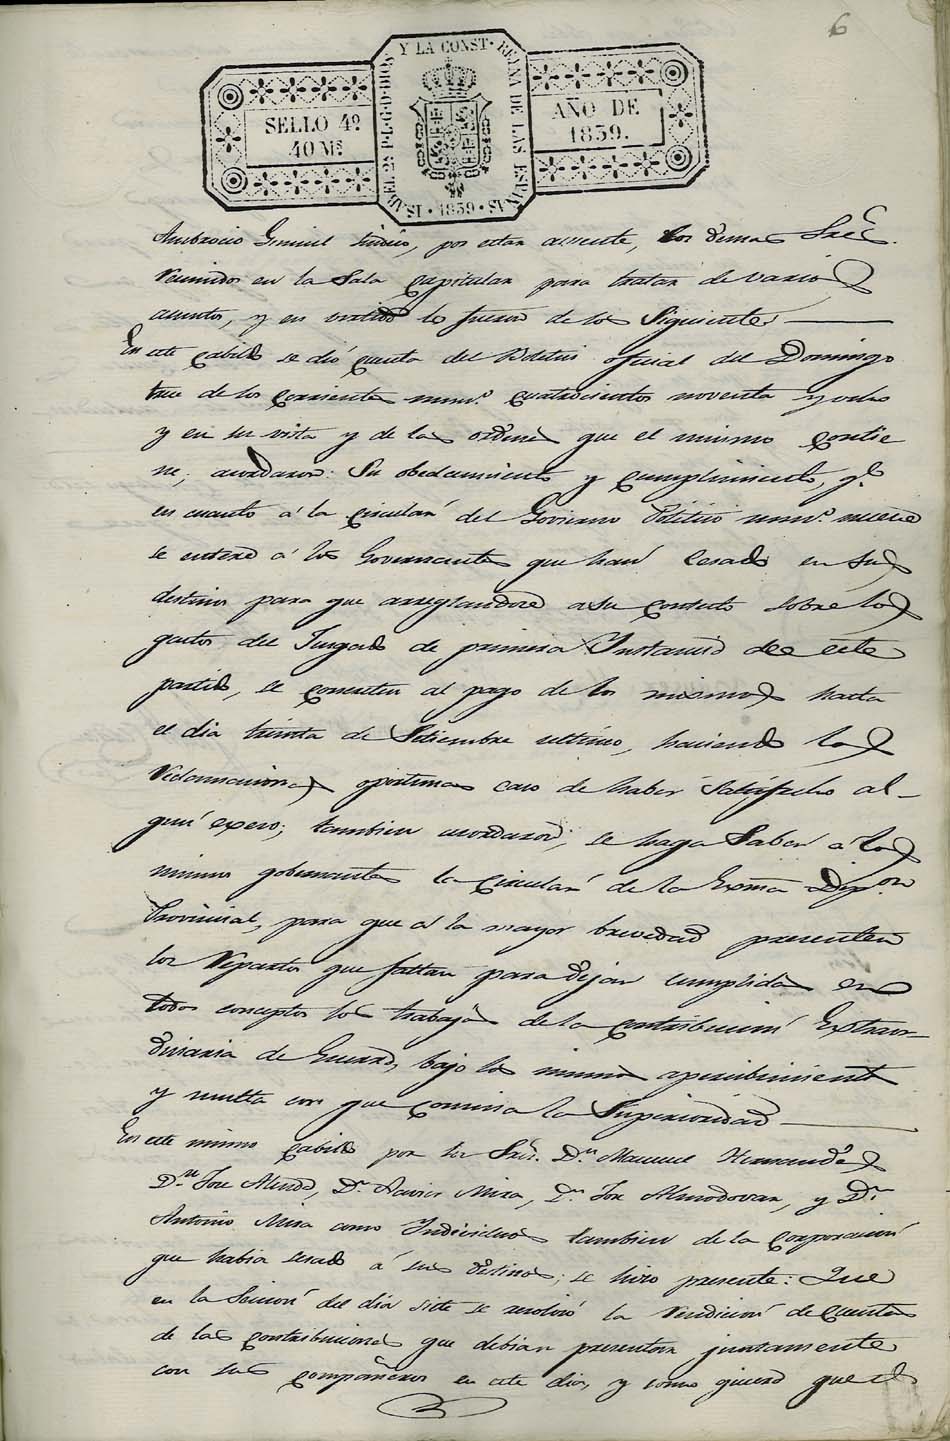 6
SELLO 4º
40 Mˢ
ISABEL 2ª P.L.G.D.DIOS Y LA CONST. REYNA DE LAS ESPAÑAS
1839
AÑO DE
1839.
Ambrocio síndico, por estar ausente, los demas Sres.
reunidos en la Sala capitular para tratar de varios
asuntos, y en virtud lo fueron de los Siguientes
En este cabildo se dió cuenta del Boletin oficial del Domingo
trece de los corrientes num.º cuatrocientos noventa y ocho
y en su vista y de las ordenes que el mismo contie
ne, acordaron: Su obedecimiento y cumplimiento, y q.e
en cuanto á la circular del Govierno Politico num.º nueve
se entere á los Governantes que han Cesado en sus
destinos para que arreglandose a su contesto sobre los
gastos del Juzgado de primera Instancia de este
partido, se al pago de los mismos hasta
el dia treinta de Setiembre ultimo, haciendo las
reclamaciones oportunas caso de haber Satisfecho al-
gun exceso; tambien acordaron, se haga Saber á los
mismos gobernantes la circular de la Exma Dip.on
Provincial, para que á la mayor brevedad presenten
los Repartos que faltan para dejar cumplidos en
todos conceptos los trabajos de la contribucion Extraor-
dinaria de Guerra, bajo los mismos apercibimient
y multa con que comina la Superioridad
En este mismo cabildo por los Sres. D.n Manuel Hernandes
D.n Jose D.n Xavier Mira, D.n Jose Almodovar, y D.n
Antonio Mira como Individuos tambien de la corporacion
que habia cesado á sus destinos; se hizo presente: Que
en la Secion del dia siete se resolvió la Rendicion de cuentas
de las contribuciones que debian presentar juntamente
con sus compañeros en este dia, y como quiera que el